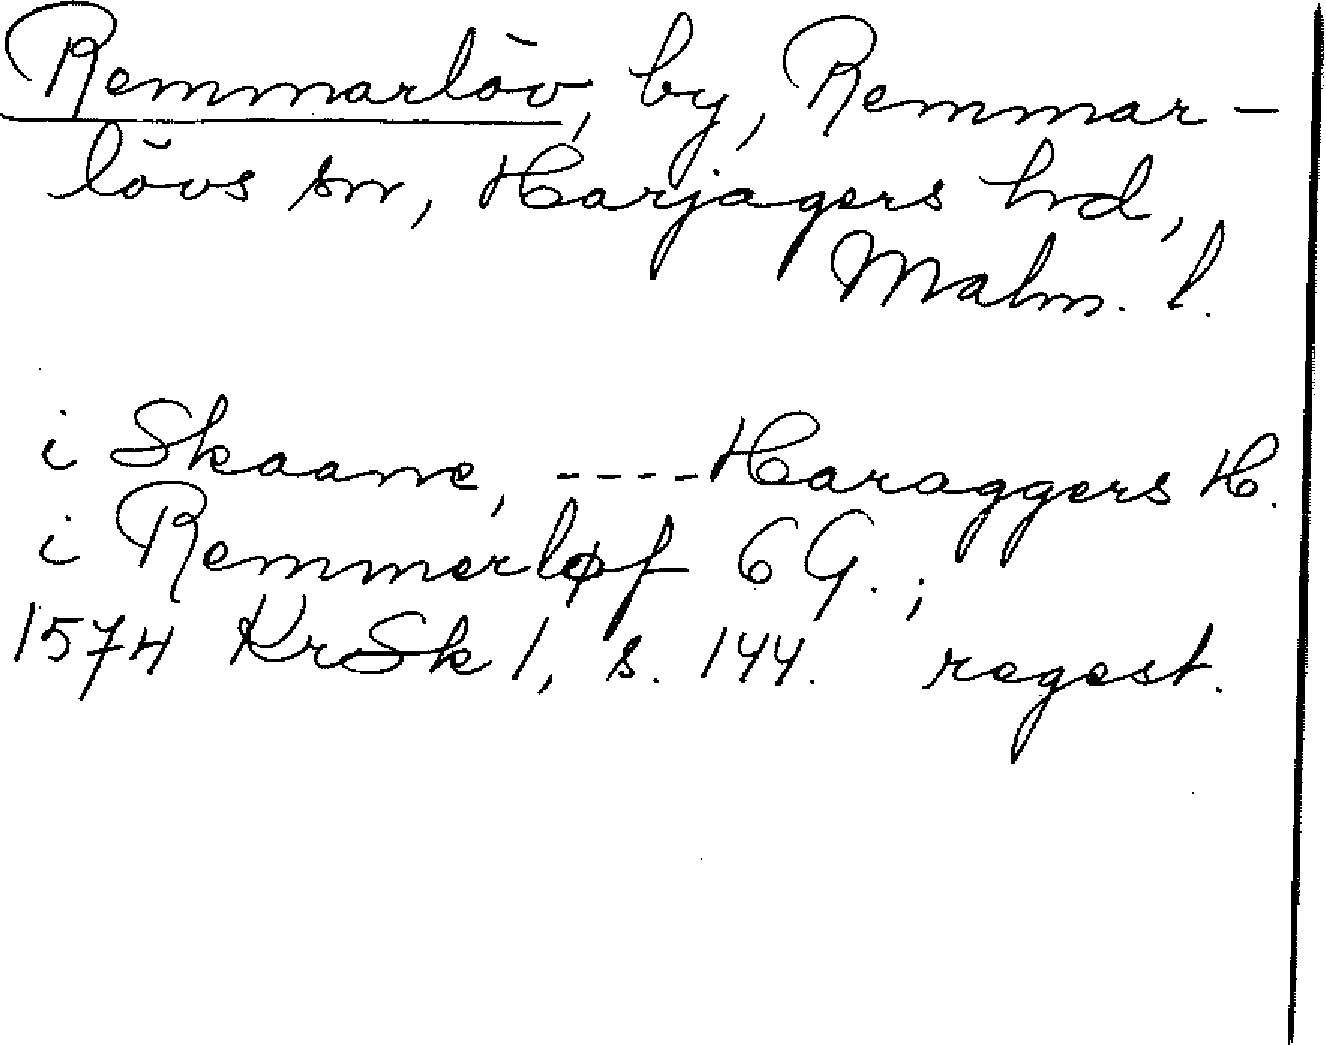 Remmarlöv, by, Remmar-
lövs sn, Harjagers hd,
Malm. l.
i Skaane, ----Haraggers H.
i Remmerløf 6 G. ;
1574 KrSk 1, s. 144. regest.